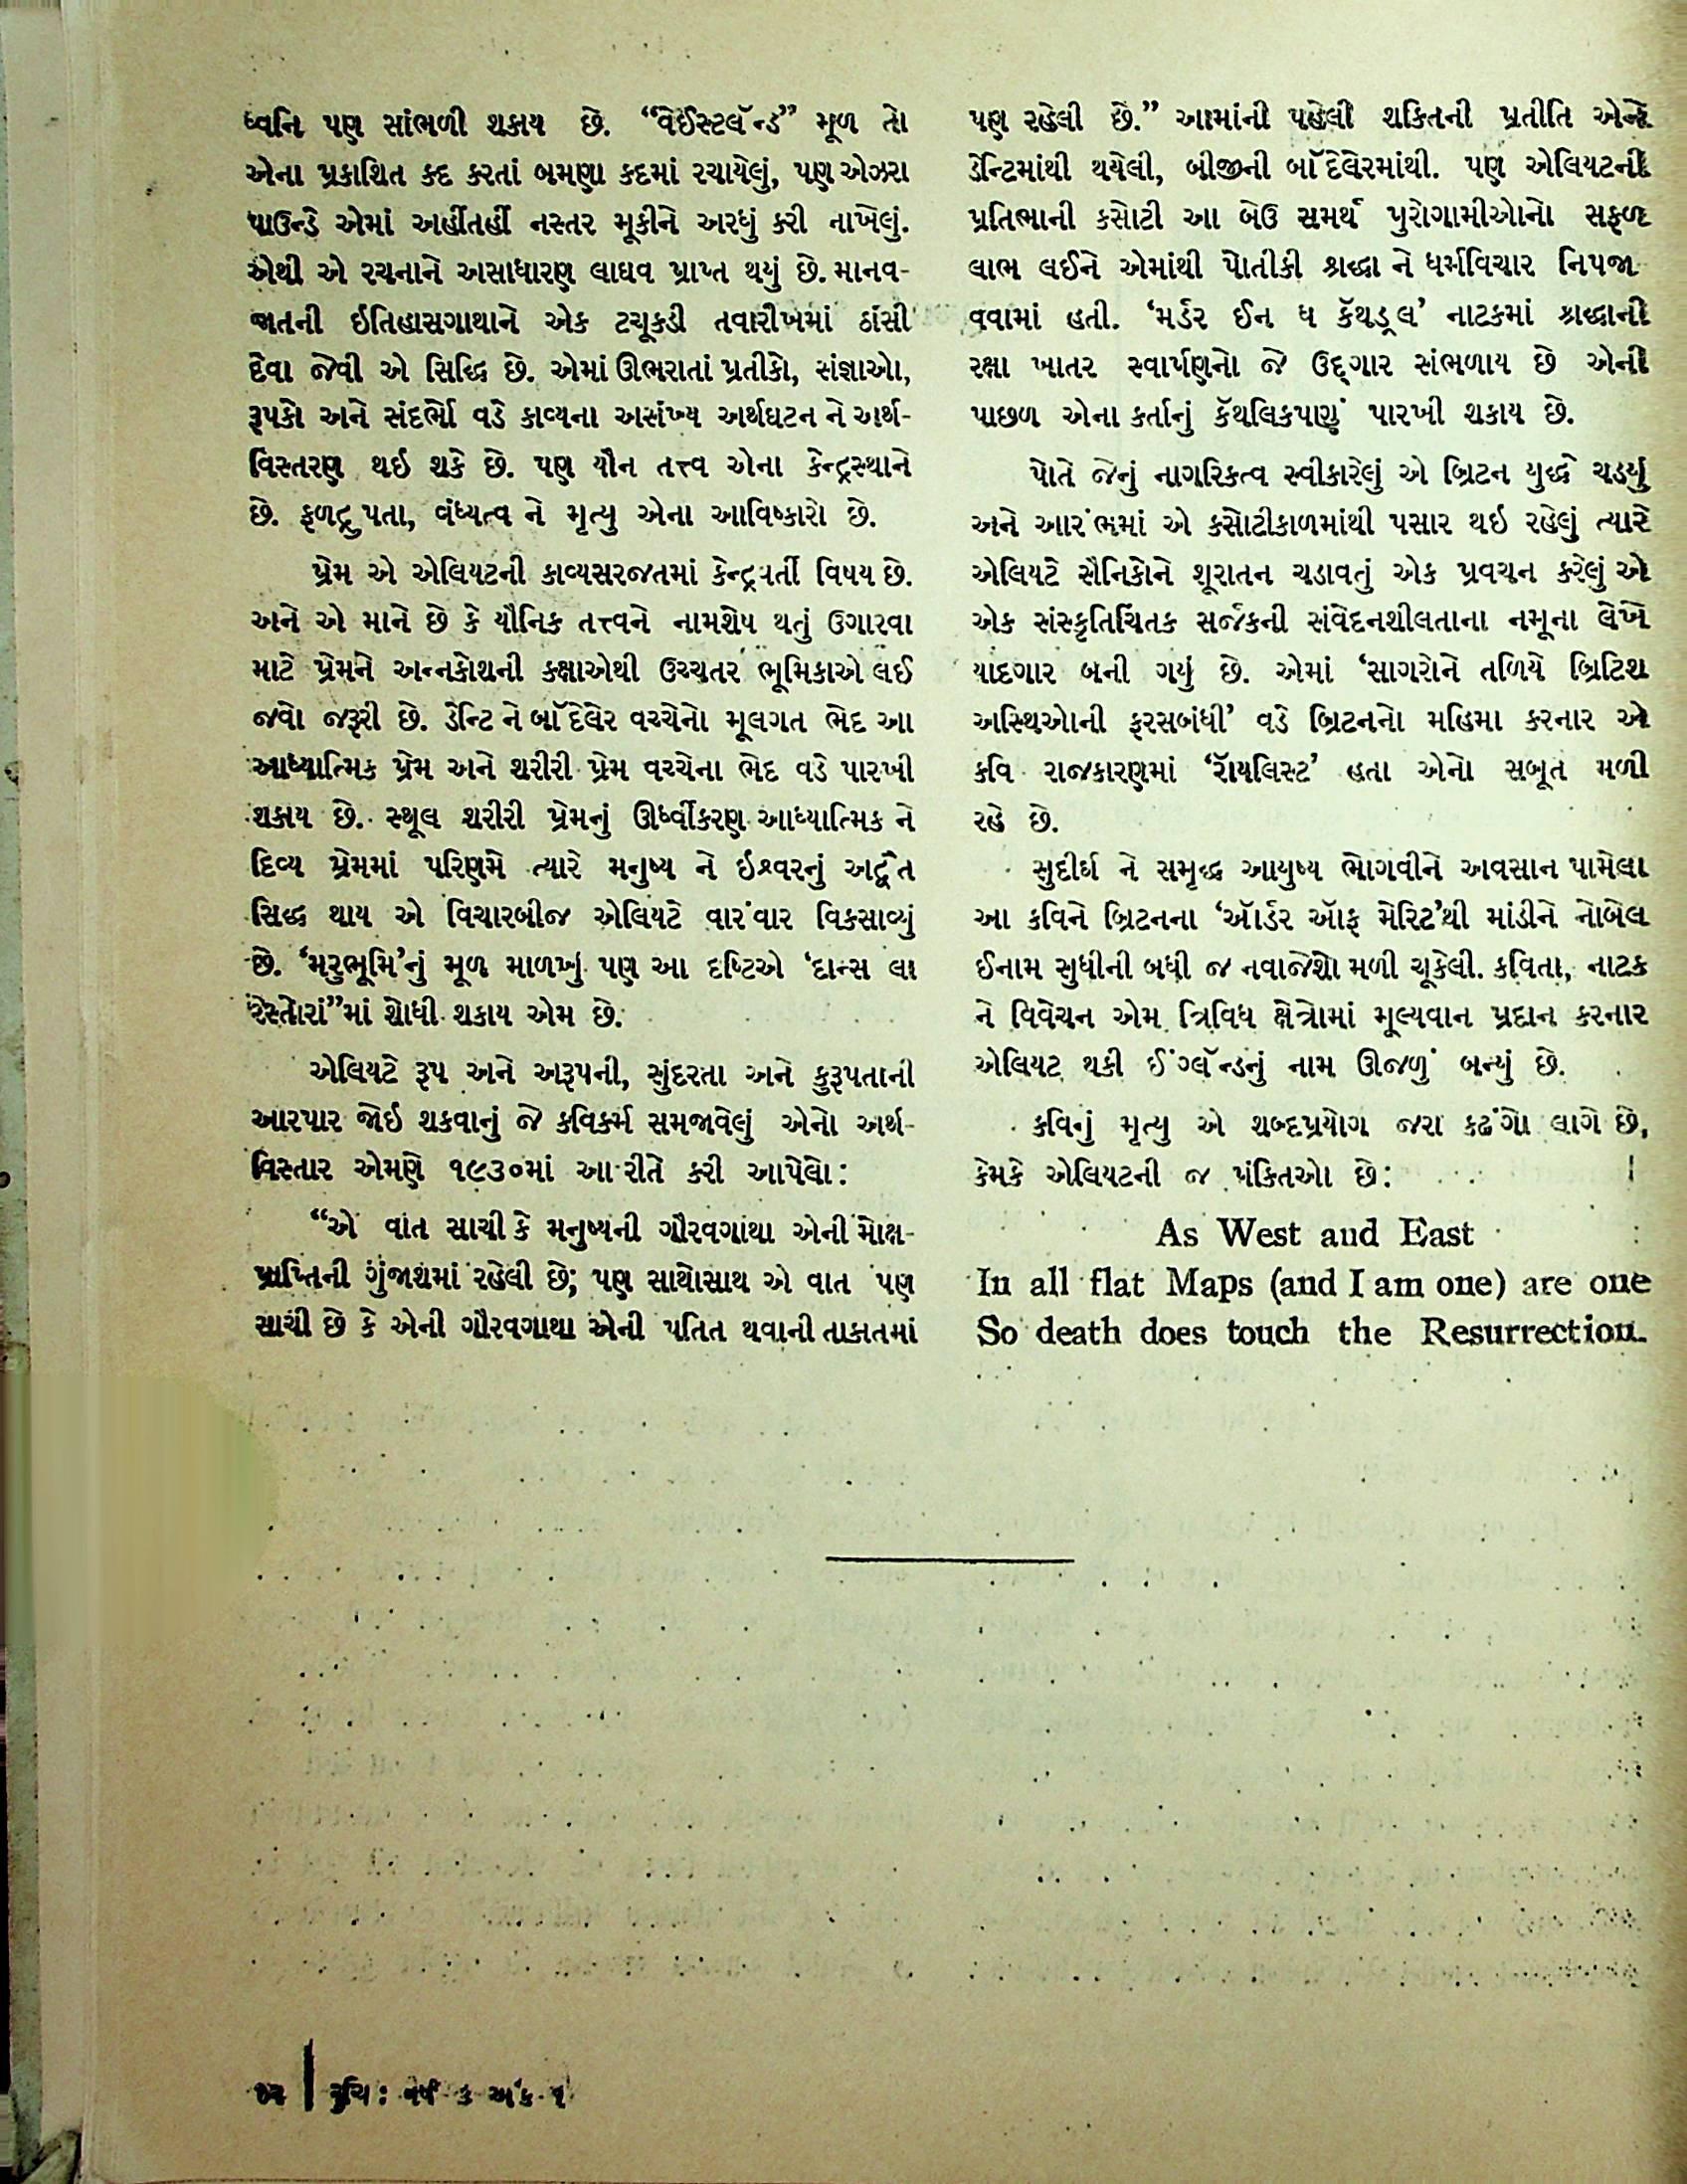 ધ્વનિ પણ સાંભળી શકાય છે. “વેઈસ્ટલૅન્ડ” મૂળ તો
એના પ્રકાશિત કદ કરતાં બમણા કદમાં રચાયેલું, પણ એઝરા
પાઉન્ડે એમાં અહીંતહીં નસ્તર મૂકીને અરધું કરી નાખેલું.
એથી એ રચનાને અસાધારણ લાઘવ પ્રાપ્ત થયું છે. માનવ-
જાતની ઇતિહાસગાથાને એક ટચૂકડી તવારીખમાં ઠાંસી
દેવા જેવી એ સિદ્ધિ છે. એમાં ઊભરાતાં પ્રતીકો, સંજ્ઞાઓ,
રૂપકો અને સંદર્ભો વડે કાવ્યના અસંખ્ય અર્થઘટન ને અર્થ-
વિસ્તરણ થઇ શકે છે. પણ યૌન તત્ત્વ એના કેન્દ્રસ્થાને
છે. ફળદ્રુપતા, વંધ્યત્વ ને મૃત્યુ એના આવિષ્કારો છે.
પ્રેમ એ એલિયટની કાવ્યસરજતમાં કેન્દ્રવર્તી વિષય છે.
અને એ માને છે કે યૌનિક તત્ત્વને નામશેષ થતું ઉગારવા
માટે પ્રેમને અન્નકોશની કક્ષાએથી ઉચ્ચતર ભૂમિકાએ લઈ
જવો જરૂરી છે. ડેન્ટિ ને બૉદેલેર વચ્ચેનો મૂલગત ભેદ આ
આધ્યાત્મિક પ્રેમ અને શરીરી પ્રેમ વચ્ચેના ભેદ વડે પારખી
શકાય છે. સ્થૂલ શરીરી પ્રેમનું ઊર્ધ્વીકરણ આધ્યાત્મિક ને
દિવ્ય પ્રેમમાં પરિણમે ત્યારે મનુષ્ય ને ઇશ્વરનું અદ્વૈત
સિદ્ધ થાય એ વિચારબીજ એલિયટે વારંવાર વિકસાવ્યું
છે. ‘મરુભૂમિ’નું મૂળ માળખું પણ આ દૃષ્ટિએ ‘દાન્સ લા
રેસ્તોરાં”માં શોધી શકાય એમ છે.
એલિયટે રૂપ અને અરૂપની, સુંદરતા અને કુરૂપતાની
આરપાર જોઇ શકવાનું જે કવિકર્મ સમજાવેલું એનો અર્થ-
વિસ્તાર એમણે ૧૯૩૦માં આ રીતે કરી આપેલો:
“એ વાત સાચી કે મનુષ્યની ગૌરવગાથા એની મોક્ષ-
પ્રાપ્તિની ગુંજાશમાં રહેલી છે; પણ સાથોસાથ એ વાત પણ
સાચી છે કે એની ગૌરવગાથા એની પતિત થવાની તાકાતમાં
પણ રહેલી છે.” આમાંની પહેલી શકિતની પ્રતીતિ એને
ડેન્ટિમાંથી થયેલી, બીજીની બૉદેલેરમાંથી. પણ એલિયટની
પ્રતિભાની કસોટી આ બેઉ સમર્થ પુરોગામીઓનો સફળ
લાભ લઈને એમાંથી પોતીકી શ્રદ્ધા ને ધર્મવિચાર નિપજા
વવામાં હતી. ‘મર્ડર ઈન ધ કૅથડ્રલ’ નાટકમાં શ્રદ્ધાની
રક્ષા ખાતર સ્વાર્પણનો જે ઉદ્‌ગાર સંભળાય છે એની
પાછળ એના કર્તાનું કૅથલિકપણું પારખી શકાય છે.
પોતે જેનું નાગરિકત્વ સ્વીકારેલું એ બ્રિટન યુદ્ધે ચડર્યુ
અને આરંભમાં એ કસોટીકાળમાંથી પસાર થઇ રહેલું ત્યારે
એલિયટે સૈનિકોને શૂરાતન ચડાવતું એક પ્રવચન કરેલું એ
એક સંસ્કૃતિચિંતક સર્જકની સંવેદનશીલતાના નમૂના લેખે
યાદગાર બની ગયું છે. એમાં ‘સાગરોને તળિયે બ્રિટિશ
અસ્થિઓની ફરસબંધી’ વડે બ્રિટનનો મહિમા કરનાર એ
કવિ રાજકારણમાં ‘રૉયલિસ્ટ’ હતા એનો સબૂત મળી
રહે છે.
સુદીર્ઘ ને સમૃદ્ધ આયુષ્ય ભોગવીને અવસાન પામેલા
આ કવિને બ્રિટનના ‘ઑર્ડર ઑફ મેરિટ’થી માંડીને નોબેલ
ઈનામ સુધીની બધી જ નવાજેશો મળી ચૂકેલી. કવિતા, નાટક
ને વિવેચન એમ ત્રિવિધ ક્ષેત્રોમાં મૂલ્યવાન પ્રદાન કરનાર
એલિયટ થકી ઈંગ્લૅન્ડનું નામ ઊજળું બન્યું છે.
કવિનું મૃત્યુ એ શબ્દપ્રયોગ જરા કઢંગો લાગે છે,
કેમકે એલિયટની જ પંકિતઓ છે:
As West and East
In all flat Maps (and I am one) are one
So death does touch the Resurrection.
રુચિ : વર્ષ ૩ અંક ૧